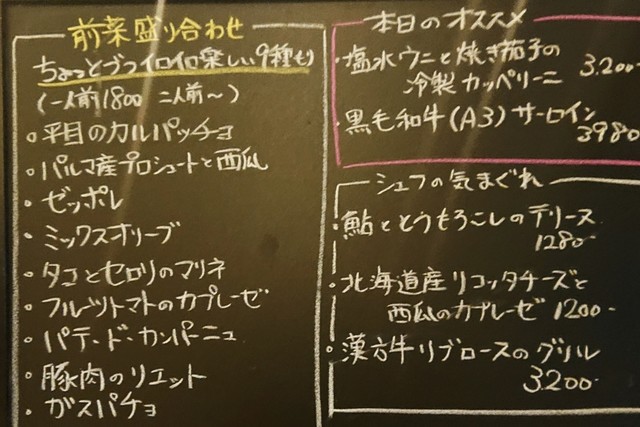 前菜盛り合わせ
ちょっとづつイロイロ楽しい9種もり
(一人前1800 二人前~)
・平目のカルパッチョ
・パルマ産プロシュートと西瓜
・ゼッポレ
・ミックスオリーブ
・タコとセロリのマリネ
・フルーツトマトのカプレーゼ
・パテ・ド・カンパーニュ
・豚肉のリエット
・ガスパチョ
本日のオススメ
・塩水ウニと焼き茄子の
冷製カッペリーニ 3.200-
・黒毛和牛(A3)サーロイン
3980
シェフの気まぐれ
・鮎ととうもろこしのテリーヌ
1280-
・北海道産リコッタチーズと
西瓜のカプレーゼ 1200-
・漢方牛リブロースのグリル
3.200-